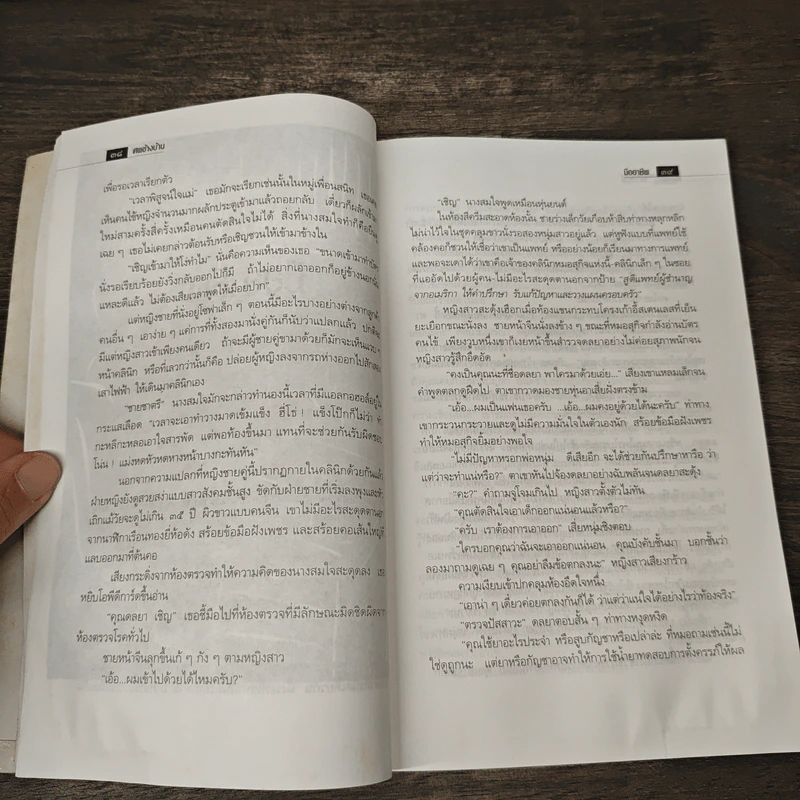 ๓๘ ศพข้างบ้าน
เพื่อรอเวลาเรียกตัว
"เวลาพิสูจน์ใจแม่" เธอมักจะเรียกเช่นนั้นในหมู่เพื่อนสนิท
เห็นคนไข้หญิงจำนวนมากผลักประตูเข้ามาแล้วถอยกลับ เดี๋ยวก็ผลักเข้า
ใหม่สามครั้งสี่ครั้งเหมือนคนตัดสินใจไม่ได้ สิ่งที่นางสมใจทำก็คือ
เฉย ๆ เธอไม่เคยกล่าวต้อนรับหรือเชิญชวนให้เข้ามาข้างใน
"เชิญเข้ามาให้โง่ทำไม" นั่นคือความเห็นของเธอ "ขนาดเข้ามา
นั่งรอเรียบร้อยยังวิ่งกลับออกไปก็มี ถ้าไม่อยากเอาออกก็อยู่ข้างนอก
แหละดีแล้ว ไม่ต้องเสียเวลาพูดให้เมื่อยปาก"
แต่หญิงชายที่นั่งอยู่โซฟาเล็ก ๆ ตอนนี้มีอะไรบางอย่างต่างจาก
คนอื่น ๆ เอาง่าย ๆ แค่การที่ทั้งสองมานั่งคู่กันก็นับว่าแปลกแล้ว ปกติ
มีแต่หญิงสาวเข้าเพียงคนเดียว ถ้าจะมีผู้ชายคู่ขามาด้วยก็มักจะเห็น
หน้าคลินิก หรือที่เลวกว่านั้นก็คือ ปล่อยผู้หญิงลงจากรถห่างออกไปสัก
เสาไฟฟ้า ให้เดินมาคลินิกเอง
"ชายชาตรี" นางสมใจมักจะกล่าวทำนองนี้เวลาที่มีแอลกอฮอล์อยู่ใน
กระแสเลือด "เวลาจะเอาทำวางมาดเข้มแข็ง ฮึโธ่! แข็งโป๊กก็ไม่ว่า
กะหลีกะหลอเอาใจสารพัด แต่พอท้องขึ้นมา แทนที่จะช่วยกันรับผิดชอบ
โน่น! แม่งหดหัวหดหางหน้าบางกะทันหัน"
นอกจากความแปลกที่หญิงชายคู่นี้ปรากฏกายในคลินิกด้วยกันแล้ว
ฝ่ายหญิงยังดูสวยสง่าแบบสาวสังคมชั้นสูง ขัดกับฝ่ายชายที่เริ่มลงพุงและ
เถิกแม้วัยจะดูไม่เกิน ๓๕ ปี ผิวขาวแบบคนจีน เขาไม่มีอะไรสะดุดตานอก
จากนาฬิกาเรือนทองยี่ห้อดัง สร้อยข้อมือฝังเพชร และสร้อยคอเส้นใหญ่ที่
แลบออกมาที่ต้นคอ
เสียงกระดิ่งจากห้องตรวจทำให้ความคิดของนางสมใจสะดุดลง เธอ
หยิบโอพีดีการ์ดขึ้นอ่าน
"คุณดลยา เชิญ" เธอชี้มือไปที่ห้องตรวจที่มีลักษณะมิดชิดผิดจาก
ห้องตรวจโรคทั่วไป
ชายหน้าจีนลุกขึ้นเก้ ๆ กัง ๆ ตามหญิงสาว
"เอ้อ...ผมเข้าไปด้วยได้ไหมครับ?"
มืออาชีพ ๓๙
"เชิญ" นางสมใจพูดเหมือนหุ่นยนต์
ในห้องสี่ครีมสะอาดห้องนั้น ชายร่างเล็กวัยเกือบห้าสิบท่าทางหลุกหลิก
ไม่น่าไว้ใจในชุดคลุมขาวนั่งรอสองหนุ่มสาวอยู่แล้ว แต่หูฟังแบบที่แพทย์ใช้
คล้องคอก็ชวนให้เชื่อว่าเขาเป็นแพทย์ หรืออย่างน้อยก็เรียนมาทางการแพทย์
และพอจะเดาได้ว่าเขาคือเจ้าของคลินิกหมอสุกิจแห่งนี้-คลินิกเล็ก ๆ ในซอย
ที่แออัดไปด้วยผู้คน-ไม่มีอะไรสะดุดตานอกจากป้าย "สูติแพทย์ผู้ชำนาญ
จากอเมริกา ให้คำปรึกษา รับแก้ปัญหาและวางแผนครอบครัว"
หญิงสาวสะดุ้งเฮือกเมื่อท้องแขนกระทบโครงเก้าอี้สเตนเลสที่เย็น
ยะเยือกขณะนั่งลง ชายหน้าจีนนั่งลงข้าง ๆ ขณะที่หมอสุกิจกำลังอ่านบัตร
คนไข้ เพียงวูบหนึ่งเขาก็เงยหน้าขึ้นสำรวจดลยาอย่างไม่ค่อยสุภาพนักจน
หญิงสาวรู้สึกอึดอัด
"คงเป็นคุณนะที่ชื่อดลยา พาใครมาด้วยเอ่ย..." เสียงเขาแหลมเล็กจน
คำพูดตลกดูฝืดไป ตาเขากวาดมองชายหุ่นอาเสี่ยฝั่งตรงข้าม
"เอ้อ...ผมเป็นแฟนเธอครับ ...เอ้อ...ผมคงอยู่ด้วยได้นะครับ" ท่าทาง
เขากระวนกระวายและดูไม่มีความมั่นใจในตัวเองนัก สร้อยข้อมือฝังเพชร
ทำให้หมอสุกิจยิ้มอย่างพอใจ
"ไม่มีปัญหาหรอกพ่อหนุ่ม ดีเสียอีก จะได้ช่วยกันปรึกษาหารือ ว่า
แต่ว่าจะทำแน่หรือ?" ตาเขาหันไปจ้องดลยาอย่างฉับพลันจนดลยาสะดุ้ง
"คะ?" คำถามจู่โจมเกินไป หญิงสาวตั้งตัวไม่ทัน
"คุณตัดสินใจเอาเด็กออกแน่นอนแล้วหรือ?"
"ครับ เราต้องการเอาออก" เสี่ยหนุ่มชิงตอบ
"ใครบอกคุณว่าฉันจะเอาออกแน่นอน คุณบังคับชั้นมา บอกชั้นว่า
ลองมาถามดูเฉย ๆ คุณอย่าลืมข้อตกลงนะ" หญิงสาวเสียงกร้าว
ความเงียบเข้าปกคลุมห้องอึดใจหนึ่ง
"เอาน่า ๆ เดี๋ยวค่อยตกลงกันก็ได้ ว่าแต่ว่าแน่ใจได้อย่างไรว่าท้องจริง"
"ตรวจปัสสาวะ" ดลยาตอบสั้น ๆ ท่าทางหงุดหงิด
"คุณใช้ยาอะไรประจำ หรือสูบกัญชาหรือเปล่าล่ะ ที่หมอถามเช่นนี้ไม่
ใช่ดูถูกนะ แต่ยาหรือกัญชาอาจทำให้การใช้น้ำยาทดสอบการตั้งครรภ์ให้ผล